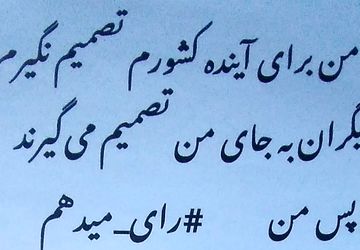 من برای آینده کشورم تصمیم نگیرم
یگران به جای من تصمیم می گیرند
پس من #رای_میدهم